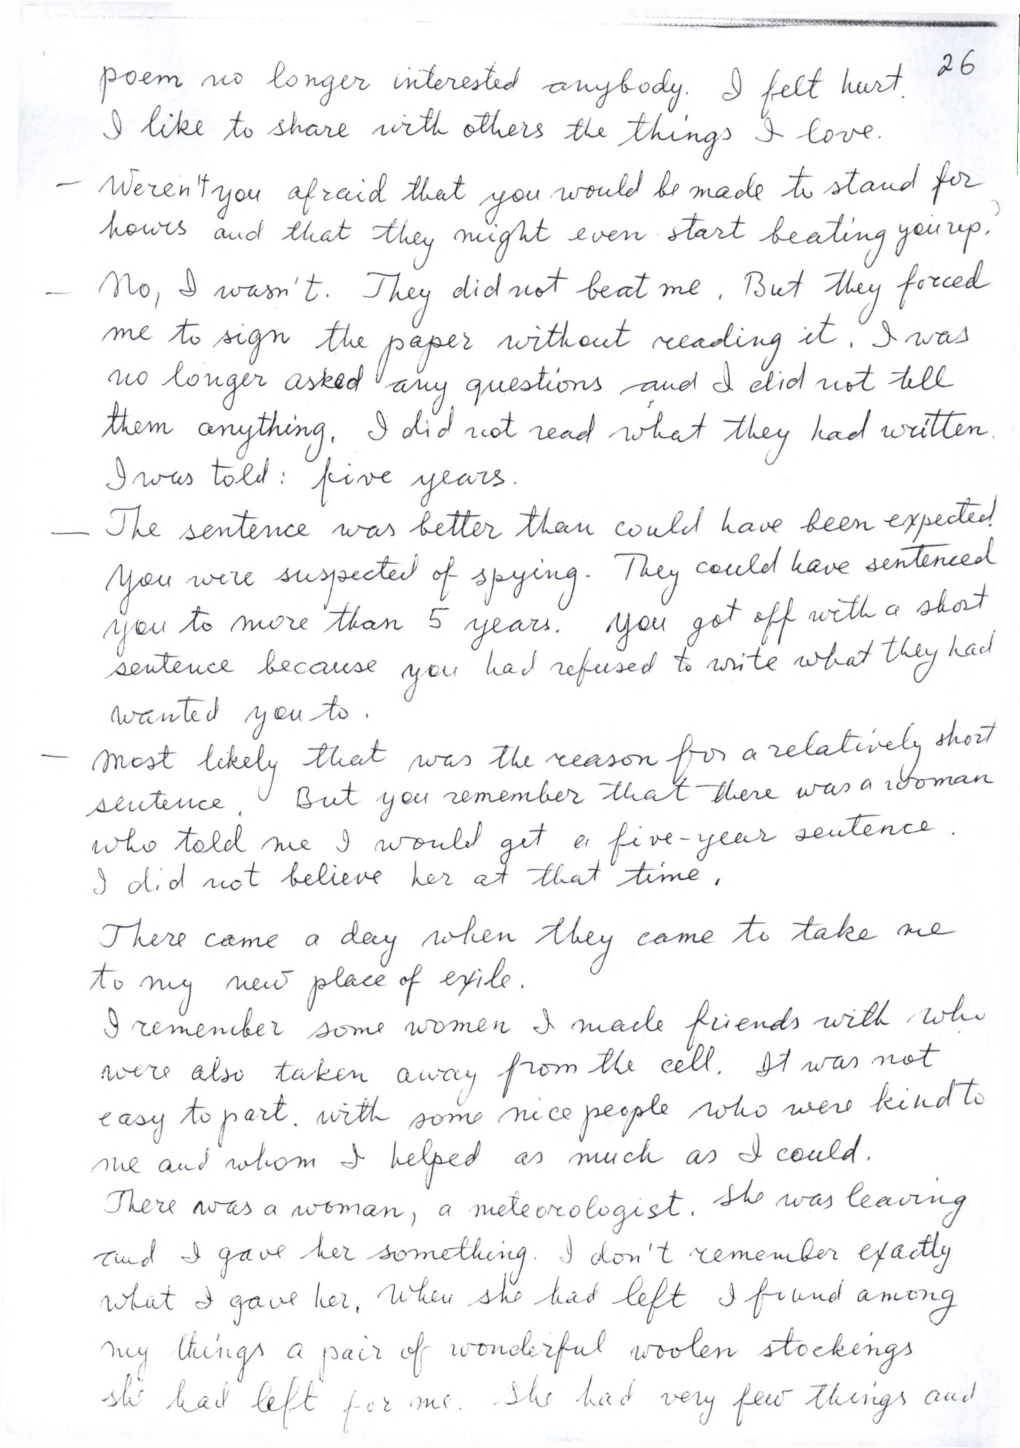 26
poem no longer interested anybody. I felt hurt.
I like to share with others the things I love.
— Weren't you afraid that you would be made to stand for
hours and that they might even start beating you up?
— No, I wasn't. They did not beat me. But they forced
me to sign the paper without reading it. I was
no longer asked any questions and I did not tell
them anything. I did not read what they had written.
I was told: five years.
— The sentence was better than could have been expected.
You were suspected of spying. They could have sentenced
you to more than 5 years. You got off with a short
sentence because you had refused to write what they had
wanted you to.
— Most likely that was the reason for a relatively short
sentence. But you remember that there was a woman
who told me I would get a five-year sentence.
I did not believe her at that time.
There came a day when they came to take me
to my new place of exile.
I remember some women I made friends with who
were also taken away from the cell. It was not
easy to part. with some nice people who were kind to
me and whom I helped as much as I could.
There was a woman, a meteorologist. She was leaving
and I gave her something. I don't remember exactly
what I gave her. When she had left I found among
my things a pair of wonderful woolen stockings
she had left for me. She had very few things and